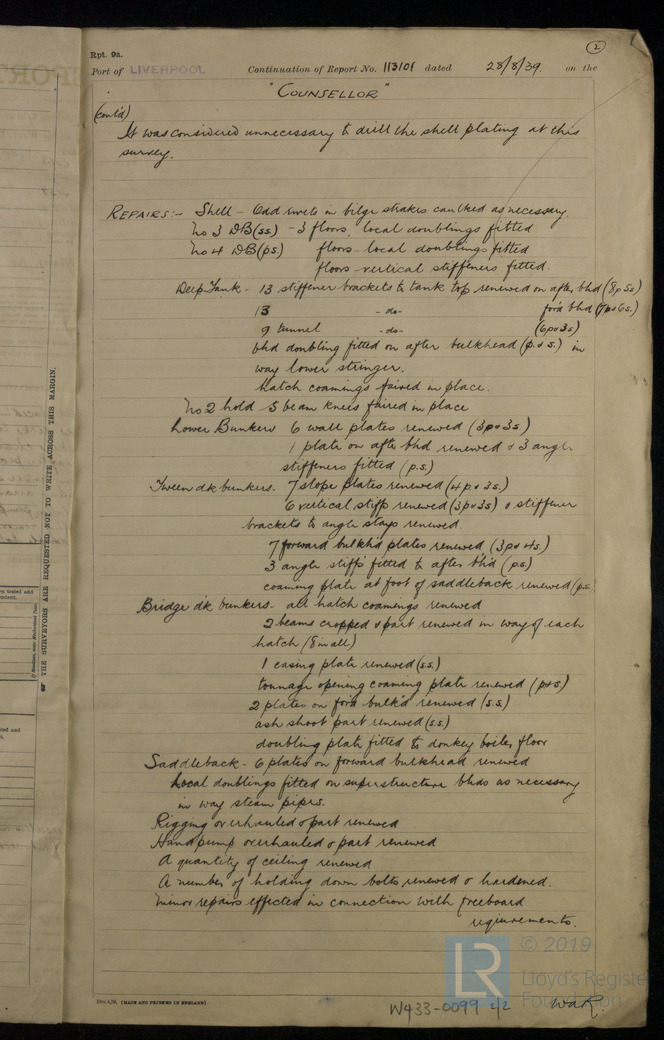 2
Rpt. 9a.
Port of LIVERPOOL Continuation of Report No. 113101 dated 28/8/39. on the
"COUNSELLOR"
(cont'd)
It was considered unnecessary to drill the shell plating at this
survey.
REPAIRS:- Shell - Odd rivets in bilge strakes caulked as necessary.
No 3 DB (s.s.) - 3 floors, local doublings fitted
No 4 DB (p.s.) floors local doublings fitted
floors vertical stiffeners fitted.
Deep Tank - 13 stiffener brackets to tank top renewed on after bhd (8p 5s)
13 -do- for'd bhd (7p & 6s.)
9 tunnel -do- (6p & 3s)
bhd doubling fitted on after bulkhead (p. & s.) in
way lower stringer.
Hatch coamings faired in place.
No 2 hold 5 beam knees faired in place
Lower Bunkers 6 wall plates renewed (3p & 3s.)
1 plate on after bhd renewed & 3 angle
stiffeners fitted (p.s.)
Tween dk bunkers. 7 slope plates renewed (4p. & 3s.)
6 vertical stiffs renewed (3p & 3s) & stiffener
brackets to angle stays renewed.
7 forward bulkh'd plates renewed (3p & 4s.)
3 angle stiffs fitted to after bh'd (p.s)
coaming plate at foot of saddleback renewed (p.s.
Bridge dk bunkers. all hatch coamings renewed
2 beams cropped & part renewed in way of each
hatch (8 in all)
1 casing plate renewed (s.s.)
tonnage opening coaming plate renewed (p & s)
2 plates on for'd bulk'd renewed (s.s.)
ash shoot part renewed (s.s.)
doubling plate fitted to donkey boiler floor
Saddleback - 6 plates on forward bulkhead renewed
Local doublings fitted on superstructure bhds as necessary
in way steam pipes.
Rigging overhauled & part renewed
Hand pump overhauled & part renewed
A quantity of ceiling renewed
A number of holding down bolts renewed & hardened.
Minor repairs effected in connection with freeboard
requirements.
(MADE AND PRINTED IN ENGLAND)
W433-0099 2/2 WaR.
THE SURVEYORS ARE REQUESTED NOT TO WRITE ACROSS THIS MARGIN.
LR © 2019
Lloyd's Register
Foundation